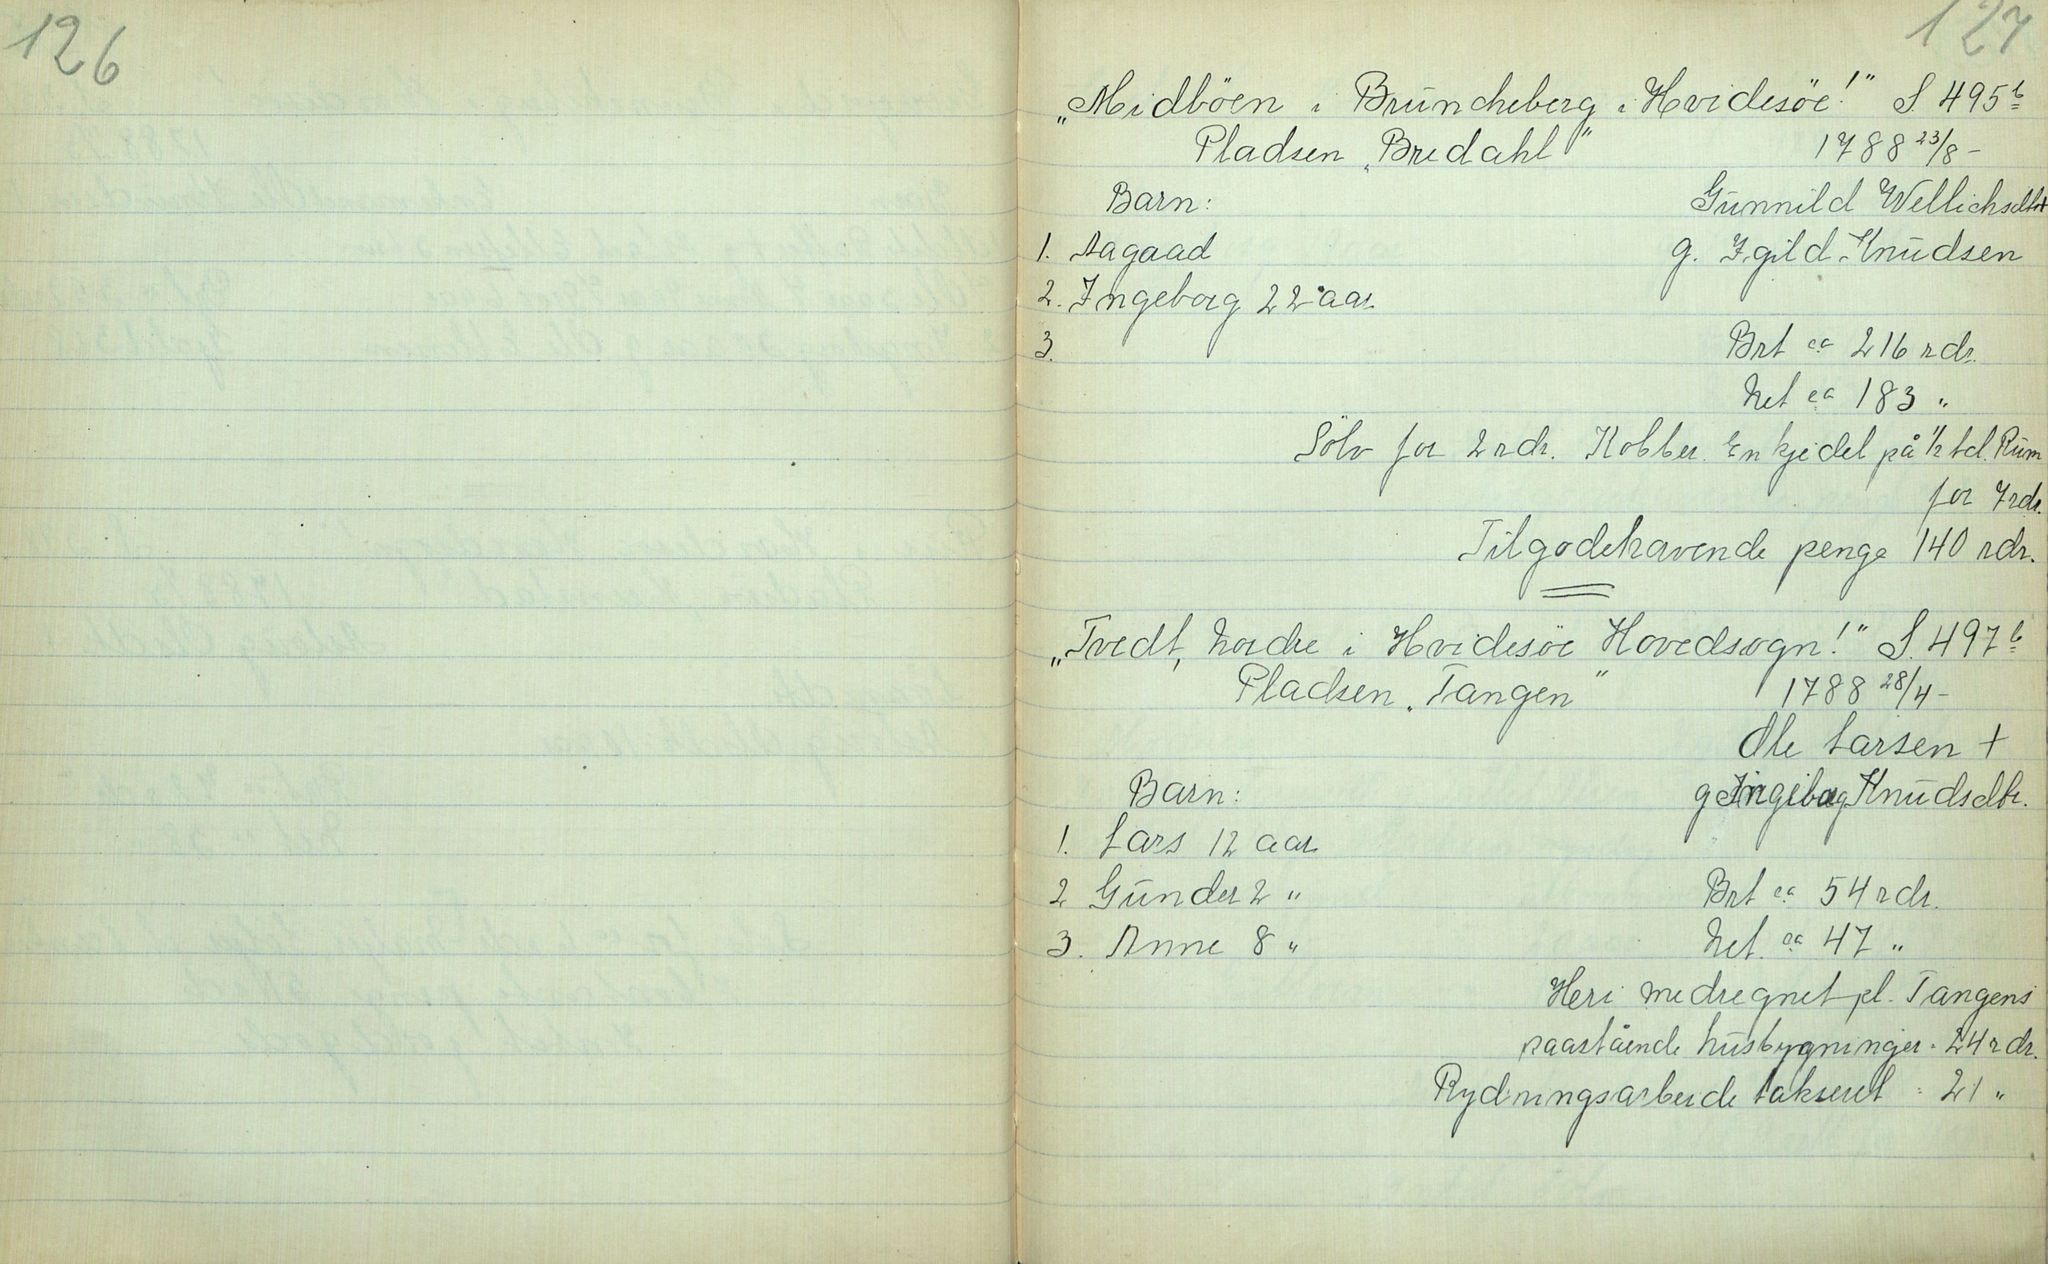 126
127
„Midböen i Brūncheberg i Hvidesöe!" S. 495b
Pladsen „Bredahl" 1788 23/8 -
Barn: Gūnnild Wellichsdtr +
1. Aagaad g. Igild Knūdsen
2. Ingeborg 22 aar
3. Brt ca 216 rdr.
Net ca 183 "
Sölv for 2 rdr. Kobber. En kjedel på 1/2 td. Rūm
for 7 rdr.
Tilgodehavende penge 140 rdr.
„Tvedt, Nordre i Hvidesöe Hovedsogn!" S. 497b
Pladsen „Tangen" 1788 28/4 -
Ole Larsen +
Barn: g Ingeborg Knūdsdtr.
1. Lars 12 aar
2 Gūnder 2 " Brt ca 54 rdr.
3. Anne 8 " Net. ca 47 "
Heri medregnet pl. Tangens
paastående hūsbygninger = 24 rdr.
Rydningsarbeide takseret = 21 "